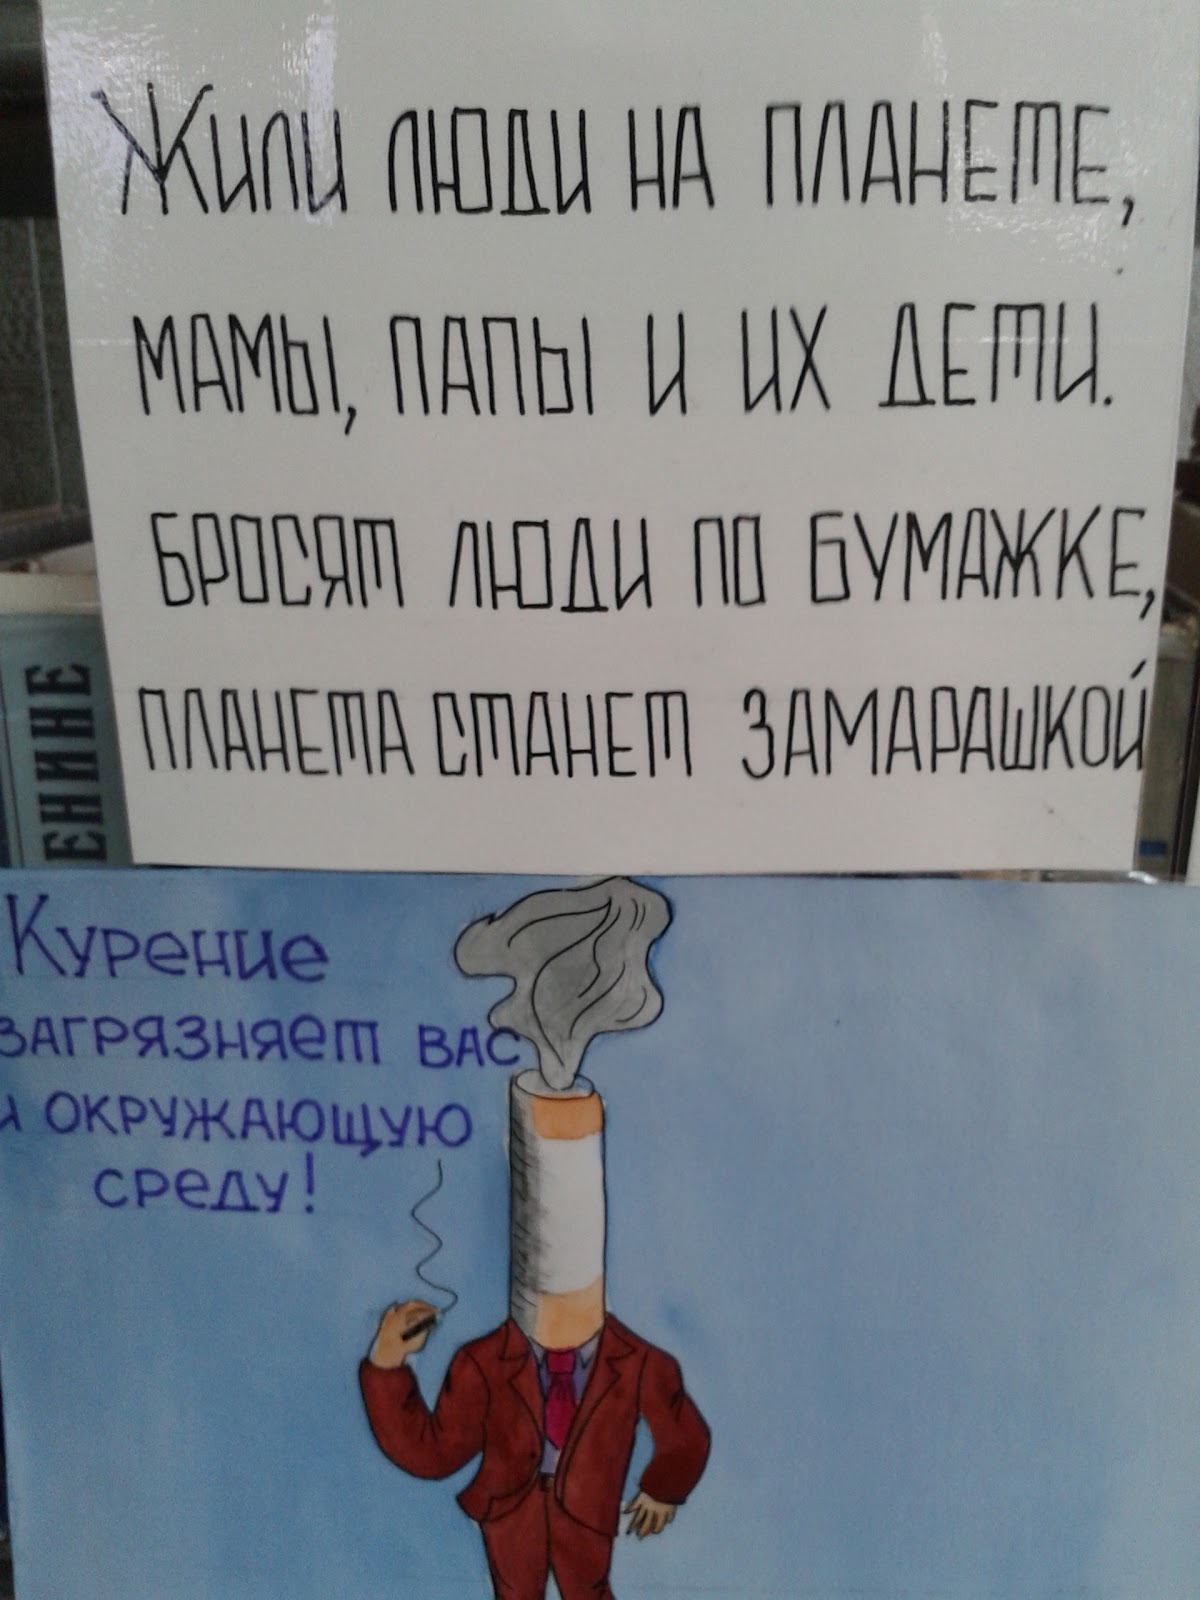 Жили люди на планете,
мамы, папы и их дети.
Бросят люди по бумажке,
планета станет замарашкой
ЕНИНЕ
Курение
загрязняет вас
и окружающую
среду!